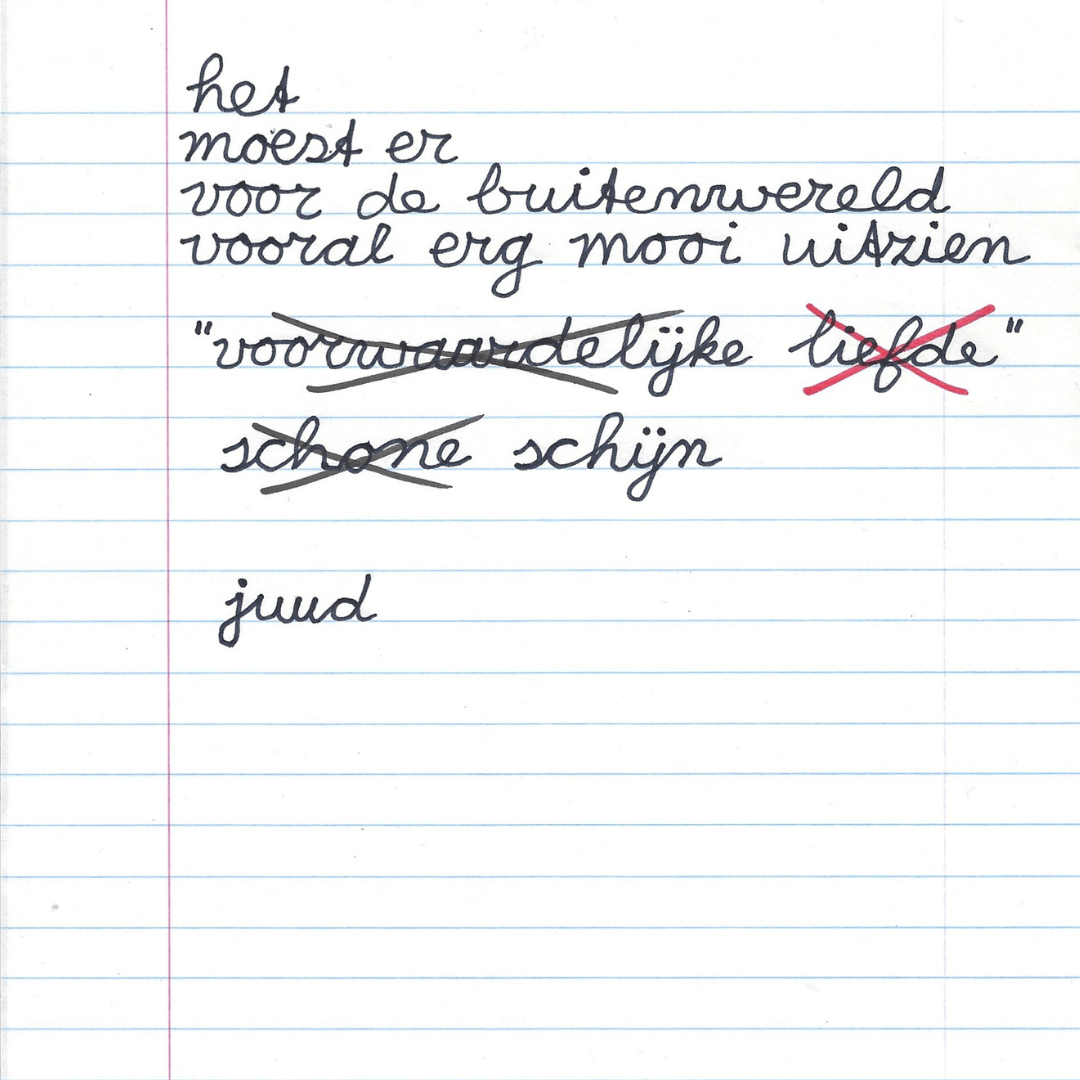 het
moest er
voor de buitenwereld
vooral erg mooi uitzien
"voorwaardelijke liefde"
schone schijn
juud